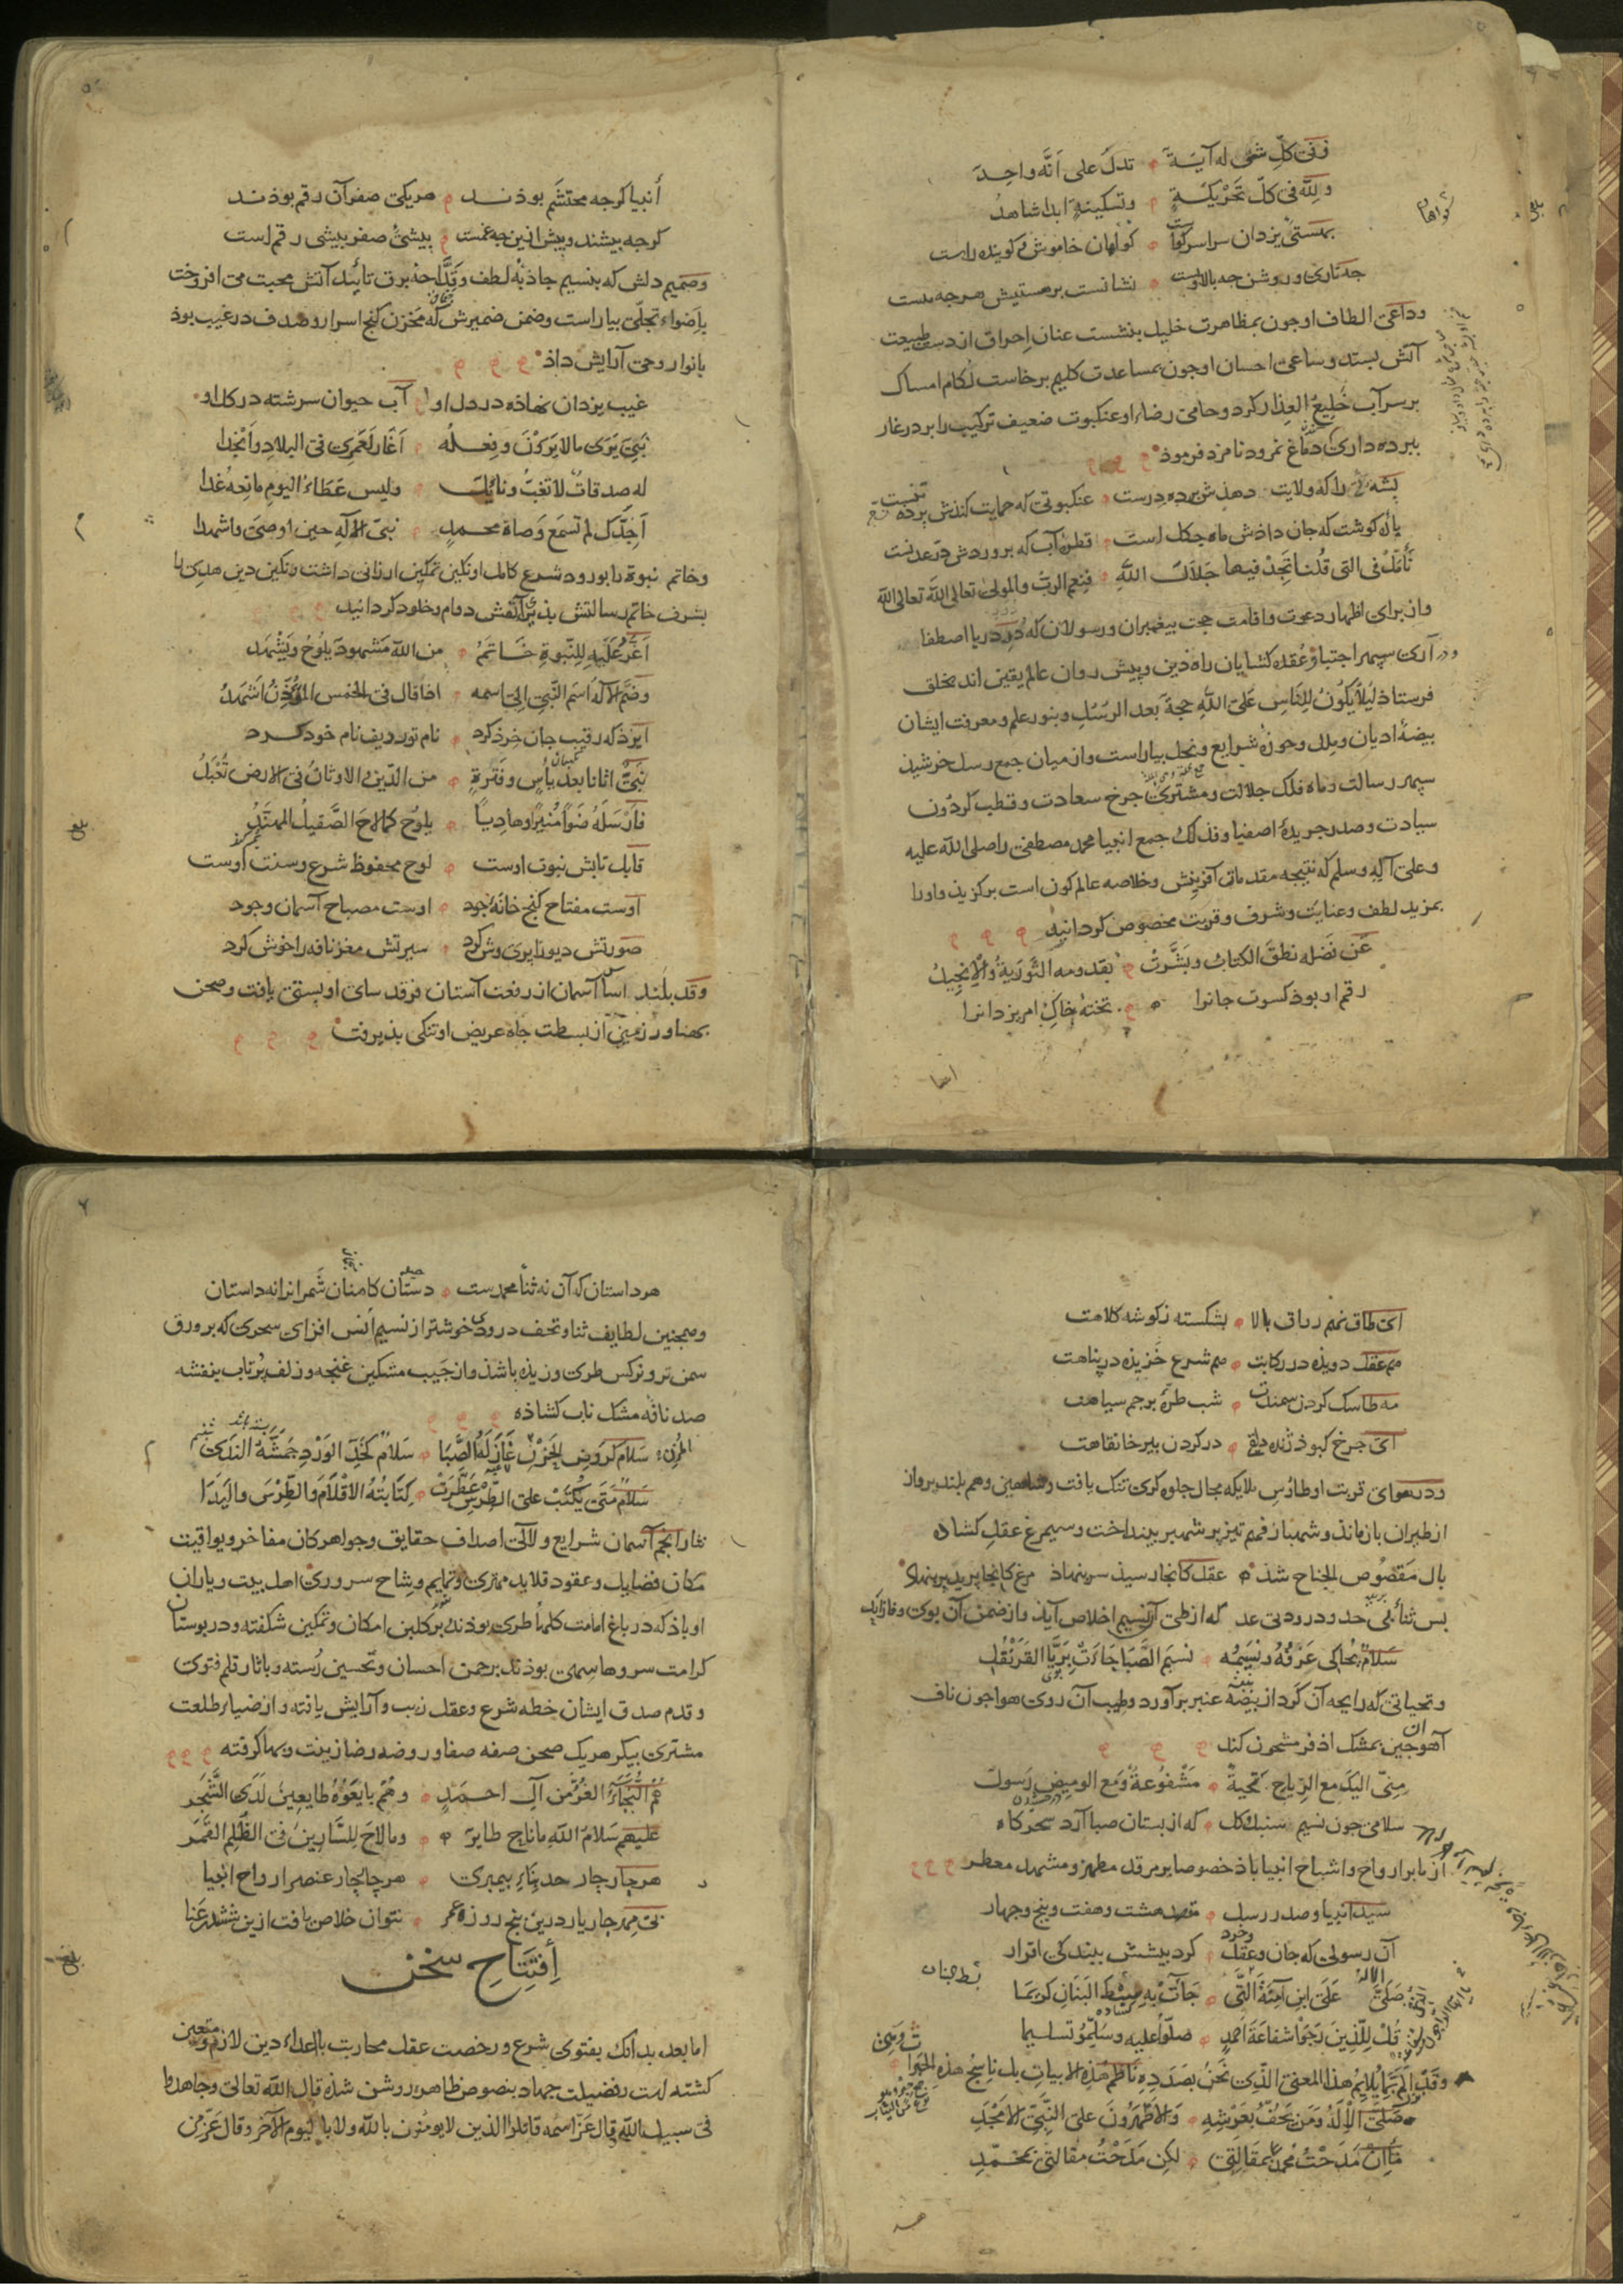 وفی کلّ شیٔ له آیـة تدل علی أنّه واحد
ولله فی کلّ تحریکة وتسکینة ابدا شاهد
بهستیٔ یزدان سراسر کواست کواهان خاموش کوینده راست
جه تاری وروشن جه بالا وبست نشانست بر هستیش هرجه هست
وداعی الطاف او جون بمظاهرت خلیل بنشست عنان احراق از دست طبیعت
آتش بستد وساعی احسان او جون بمساعدت کلیم برخاست لکام امساک
بر سر آب خلیع العذار کرد وحامی رضاء او عنکبوت ضعیف ترکیب را بر در غار
ببرده داری دماغ نمرود نامزد فرموذ
بشه را که ولایت دهذش برده درست عنکبوتی که حمایت کندش برده
باره کوشت که جان داذش ماه جکل است قطره آب که بروردش در عدنست
تأمل فی التی قلنا تجد فیها جلال الله فنعم الرب والمولی تعالی الله تعالی الله
واز برای اظهار دعوت واقامت حجت بیغمبران ورسولان که درر دریا اصطفا
ودراری سپهر اجتبا وعقده کشایان راه دین وپیش روان عالم یقین اند بخلق
فرستاذ لیلا یکون للناس علی الله حجة بعد الرسل وبنور علم ومعرفت ایشان
بیضهٔ ادیان وملل وحوزهٔ شرایع ونحل بیاراست واز میان جمع رسل خرشیذ
سپهر رسالت وماه فلک جلالت ومشتری جرخ سعادت وقطب کردون
سیادت وصدر جریدهٔ اصفیا وفذلک جمع انبیا محمد مصطفی را صلی الله علیه
وعلی آله وسلم که نتیجه مقدمات آفرینش وخلاصه عالم کون است برکزیذ واورا
بمزید لطف وعنایت وشرف وقربت مخصوص کردانیذ
عن فضله نطق الکتاب وبشرت بقدومه التوریة والانجیل
رقم او بوذ کسوت جانرا تختهٔ خاک امر یزدانرا
أنبیا کرجه محتشم بوذنـد هریکی صفر آن رقم بوذند
کرجه بیشند وبیش ازین جه غمست بیشیٔ صفر بیشی رقم است
وصمیم دلش که بنسیم جاذبهٔ لطف وقداحهٔ برق تائید آتش محبت می افروخت
باضواء تجلّی بیاراست وضمن ضمیرش که مخزن کنج اسرار وصدف در غیب بوذ
بانوار وحی آرایش داذ
غیب یزدان نهاذه در دل او آب حیوان سرشته در کل او
نبی یری مالا یرون وذکره اغار لعمری فی البلاد وانجدا
له صدقات لا تغب ونائل ولیس عطاء الیوم مانعه غدا
اجدک لم تسمع وصاة محمد نبی الاله حین اوصی واشهدا
وخاتم نبوة را بورود شرع کامل او نکین تمکین ارزانی داشت ونکین دین هدی را
بشرف خاتم رسالتش بذیرای نقش دوام وخلود کردانید
اغر علیه للنبوة خـاتم من الله مشهود یلوح ویشهد
وضم الاله اسم النبی الی اسمه اذا قال فی الخمس الموذن اشهد
ایزذ که رقیب جان خرذ کرد نام تو ردیف نام خود کـرد
نبی اتانا بعد یأس وفترة من الدین والاوثان فی الارض تعبد
فارسله ضوأ منیرا وهادیا یلوح کما لاح الصقیل المهند
قابل تابش نبوت اوست لوح محفوظ شرع وسنت اوست
اوست مفتاح کنج خانهٔ جود اوست مصباح آسمان وجود
صورتش دیو را بری وش کرد سیرتش مغز نافه را خوش کرد
وقد بلند اساس آسمان از رفعت آستان فرقد سای او بستی یافت وصحن
بهناور زمین از بسطت جاه عریض او تنکی بذیرفت
ای طاق نهم رواق بالا بشکسته ز کوشه کلاهت
هم عقل دویذه در رکابت هم شرع خزیذه در پناهت
مه طاسک کردن سمندت شب طرهٔ برجم سیاهت
ای جرخ کبوذ ژنده دلقی در کردن بیر خانقاهت
ودر هوای قربت او طاؤس ملایکه مجال جلوه کری تنک یافت وشاهین وهم بلند برواز
از طیران باز ماند وشهباز فهم تیز پر شهپر بینداخت وسیمرغ عقل کشاده
بال مقصوص الجناح شذ عقل کانجا رسیذ سر بنهاذ مرغ کانجا پرید پر بنهاد
بس ثنائی بی حد ودرودی بی عد که از طی آن نسیم اخلاص آیذ واز ضمن آن بوی وفا زاید
سلام یحاکی عرفه ونسیمه نسیم الصبا جاءت بریا القرنفل
وتحیاتی که رایحه آن کرد از بیضه عنبر برآورد وطیب آن روی هوا جون ناف
آهو جین بمشک اذفر مشحون کند
منی الیک مع الریاح تحیة مشفوعة ومع الومیض رسول
سلامی جون نسیم سنبل وکل که از بستان صبا آرد سحرکاه
از ما بر ارواح واشباح انبیا باذ خصوصا بر مرقد مطهر ومشهد معطر
سید انبیا وصدر رسل قصد هشت وهفت وبنج وجهار
آن رسولی که جان وعقل وخرد کرد بیشش ببندکی اقرار
صلی الاله علی ابن آمنة التی جاءت به سبط البنان کریما
قل للذین رجوا شفاعة احمد صلوا علیه وسلموا تسلیما
صلی الاله ومن یحف بعرشه والاطهرون علی النبی الامجد
ما ان مدحت محمدا بمقالتی لکن مدحت مقالتی بمحمد
هر داستان که آن نه ثنا محمدست دستان کاهنان شمر آنرا نه داستان
وهمجنین لطایف ثنا وتحف درودی خوشتر از نسیم انس افزای سحری که بر ورق
سمن تر ونرکس طری وزیذه باشذ واز جیب مشکین غنجه وزلف پرتاب بنفشه
صد نافه مشک ناب کشاذه
سلام کروض الحزن غازله الصبا سلام کخد الورد جمشه الندی
سلام متی یکتب علی الطرس عطرت کتابته الاقلام والطرس والیدا
نثار انجم آسمان شرایع ولآلی اصداف حقایق وجواهر کان مفاخر ویواقیت
مکان فضایل وعقود قلاید مهتری وتمایم وشاح سروری اهل بیت ویاران
او باذ که در باغ امامت کلهاء طری بوذند بر کلبن امکان وتمکین شکفته ودر بوستان
کرامت سروها سهی بوذند بر جمن احسان وتحسین رسته وبآثار قلم فتوی
وقدم صدق ایشان خطه شرع وعقل زیب وآرایش یافته واز ضیاء طلعت
مشتری بیکر هریک صحن صفه صفا وروضه رضا زینت وبها کرفته
هم النجباء الغر من آل احـمد وهم بایعوه طایعین لدی الشجر
علیهم سلام الله ما ناح طایر وما لاح للسارین فی الظلم القمر
هر جار جار حد بناء بیمبری هر جار جار عنصر ارواح انبیا
بی مهر جار یار درین بنج روزه عمر نتوان خلاص یافت ازین ششدر عنا
أفتتاح سخن
اما بعد بدانک بفتوی شرع ورخصت عقل محاربت با اعداء دین لازم ومتعین
کشته است وفضیلت جهاد بنصوص ظاهر روشن شذه قال الله تعالی وجاهدوا
فی سبیل الله وقال عز اسمه قاتلوا الذین لا یومنون بالله ولا بالیوم الآخر وقال عز من